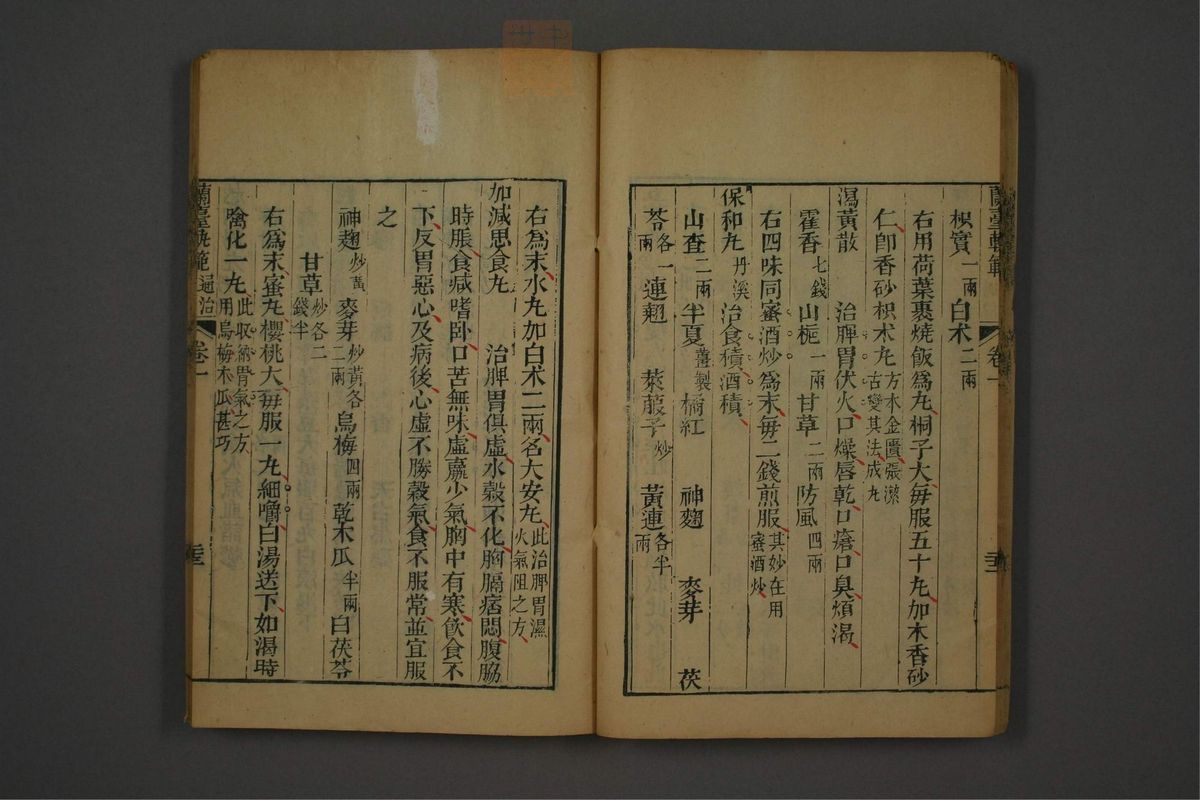 蘭臺軌範 卷一
枳實一兩白朮二兩
右用荷葉裹燒飯爲丸桐子大每服五十丸加木香砂
仁卽香砂枳朮丸方水金匱張潔古變其法成丸
瀉黃散 治脾胃伏火口燥唇乾口瘡口臭煩渴
霍香七錢山梔一兩甘草二兩防風四兩
右四味同蜜酒炒爲末每二錢煎服其妙在用蜜酒炒
保和丸丹溪治食積酒積
山查二兩半夏薑製橘紅 神麯 麥芽 茯
苓各一兩連翹 萊菔子炒 黃連各半兩
右爲末水丸加白朮二兩名大安丸此治脾胃濕火氣阻之方
加減思食丸 治脾胃俱虛水穀不化胸膈痞悶腹脇
時脹食減嗜卧口苦無味虛羸少氣胸中有寒飲食不
下反胃惡心及病後心虛不勝穀氣食不服常並宜服
之
神麯炒黃麥芽炒黃各二兩烏梅四兩乾木瓜半兩白茯苓
甘草炒各二錢半
右爲末蜜丸櫻桃大每服一丸細嚼白湯送下如渴時
噙化一丸此収納胃氣之方用烏梅木瓜甚巧
蘭臺軌範 通治 卷一